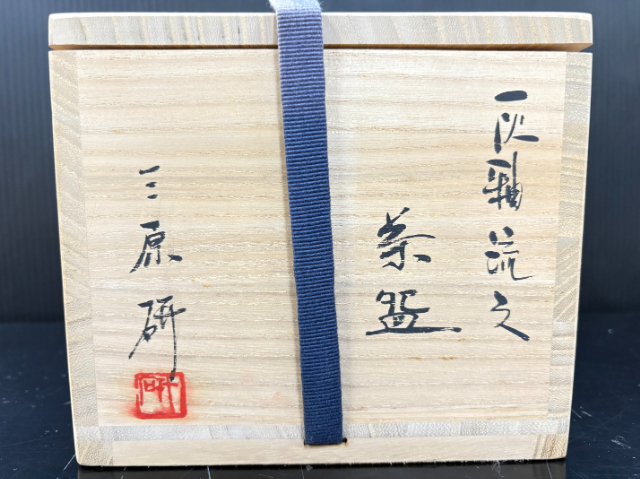 灰釉流文
茶盌
三原研
研